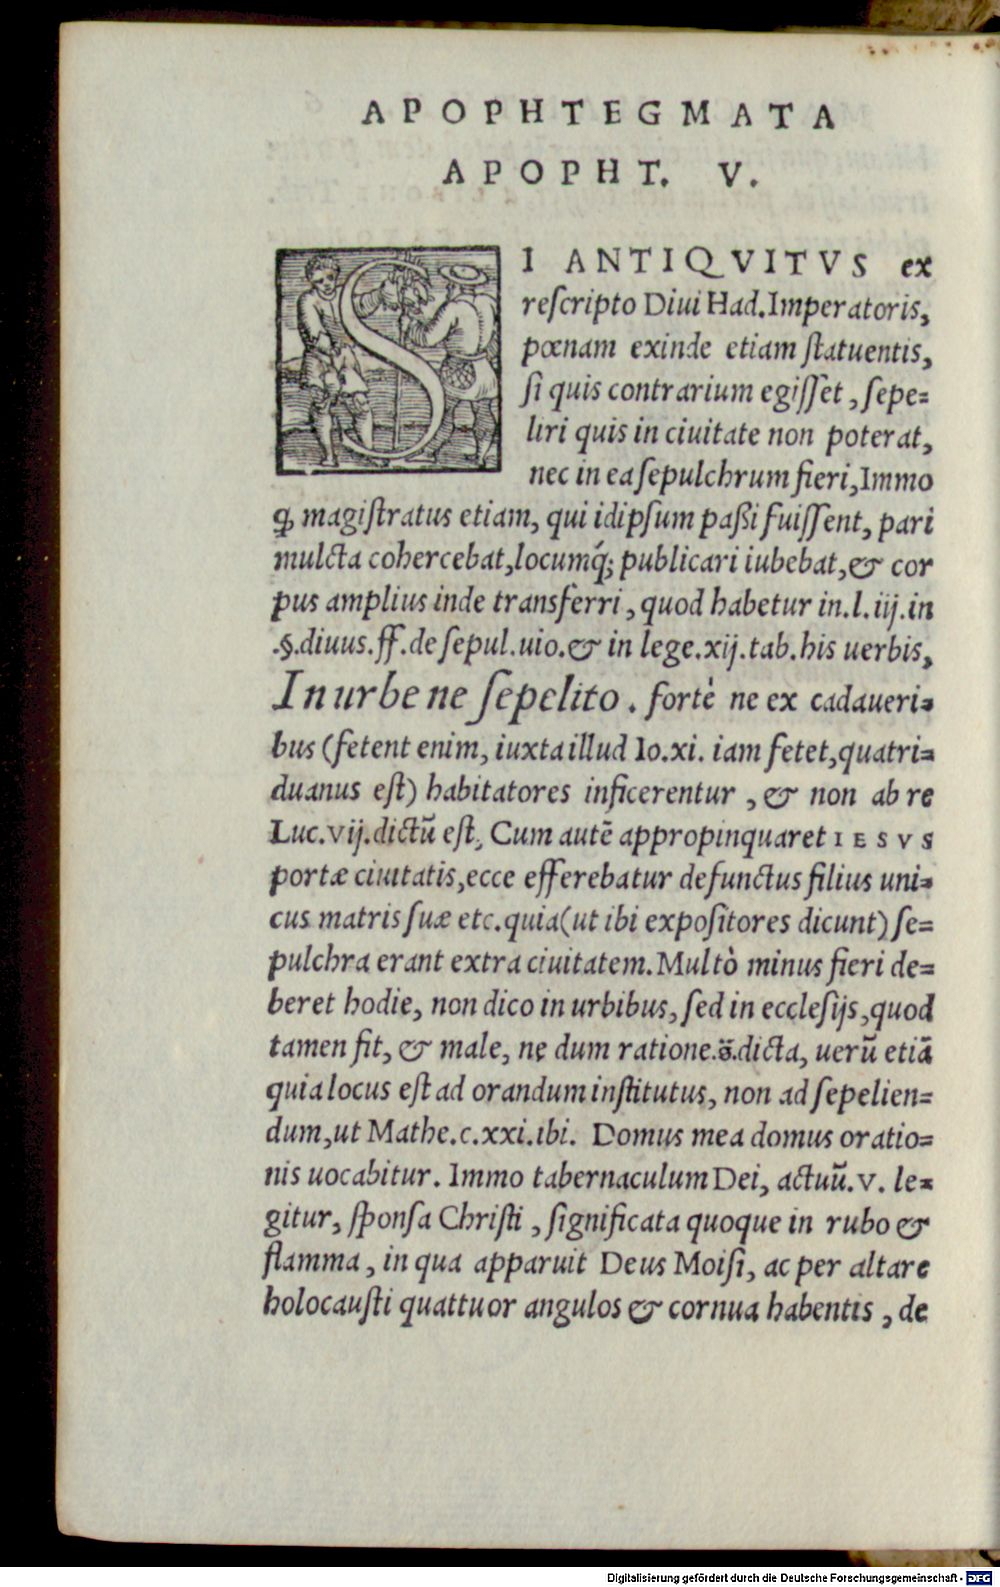 APOPHTEGMATA
APOPHT. V.
SI ANTIQVITVS ex
reſcripto Diui Had. Imperatoris,
pœnam exinde etiam ſtatuentis,
ſi quis contrarium egiſſet, ſepe=
liri quis in ciuitate non poterat,
nec in ea ſepulchrum fieri, Immo
ꝙ magiſtratus etiam, qui idipſum paßi fuiſſent, pari
mulcta cohercebat, locumq́; publicari iubebat, & cor
pus amplius inde transferri, quod habetur in.l.iij.in
.§.diuus.ff.de ſepul.uio.& in lege.xij.tab.his uerbis,
In urbe ne ſepelito. fortè ne ex cadaueri=
bus (fetent enim, iuxta illud Io.xi. iam fetet, quatri=
duanus eſt) habitatores inficerentur, & non ab re
Luc.vij.dictũ eſt, Cum autẽ appropinquaret IESVS
portæ ciuitatis, ecce efferebatur defunctus filius uni=
cus matris ſuæ etc.quia (ut ibi expoſitores dicunt) ſe=
pulchra erant extra ciuitatem. Multò minus fieri de=
beret hodie, non dico in urbibus, ſed in eccleſijs, quod
tamen fit, & male, ne dum ratione.s̃.dicta, uerũ etiã
quia locus eſt ad orandum inſtitutus, non ad ſepelien=
dum, ut Mathe.c.xxi.ibi. Domus mea domus oratio=
nis uocabitur. Immo tabernaculum Dei, actuũ.v. le=
gitur, ſponſa Chriſti, ſignificata quoque in rubo &
flamma, in qua apparuit Deus Moiſi, ac per altare
holocauſti quattuor angulos & cornua habentis, de
Digitalisierung gefördert durch die Deutsche Forschungsgemeinschaft - DFG